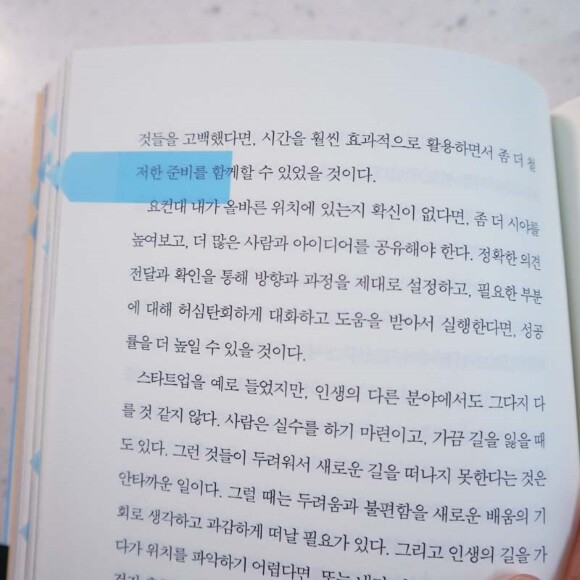 것들을 고백했다면, 시간을 훨씬 효과적으로 활용하면서 좀 더 철
저한 준비를 함께할 수 있었을 것이다.
요컨대 내가 올바른 위치에 있는지 확신이 없다면, 좀 더 시야를
높여보고, 더 많은 사람과 아이디어를 공유해야 한다. 정확한 의견
전달과 확인을 통해 방향과 과정을 제대로 설정하고, 필요한 부분
에 대해 허심탄회하게 대화하고 도움을 받아서 실행한다면, 성공
률을 더 높일 수 있을 것이다.
스타트업을 예로 들었지만, 인생의 다른 분야에서도 그다지 다
를 것 같지 않다. 사람은 실수를 하기 마련이고, 가끔 길을 잃을 때
도 있다. 그런 것들이 두려워서 새로운 길을 떠나지 못한다는 것은
안타까운 일이다. 그럴 때는 두려움과 불편함을 새로운 배움의 기
회로 생각하고 과감하게 떠날 필요가 있다. 그리고 인생의 길을 가
다가 위치를 파악하기 어렵다면, 또는